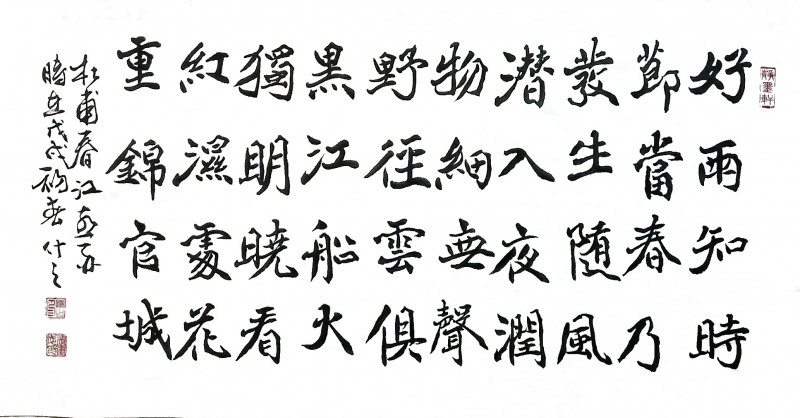 好雨知時
節當春乃
發生随風
潜入夜潤
物細無聲
野徑雲俱
黑江船火
獨明曉看
紅濕處花
重錦官城
杜甫春江
時在戊戌初春